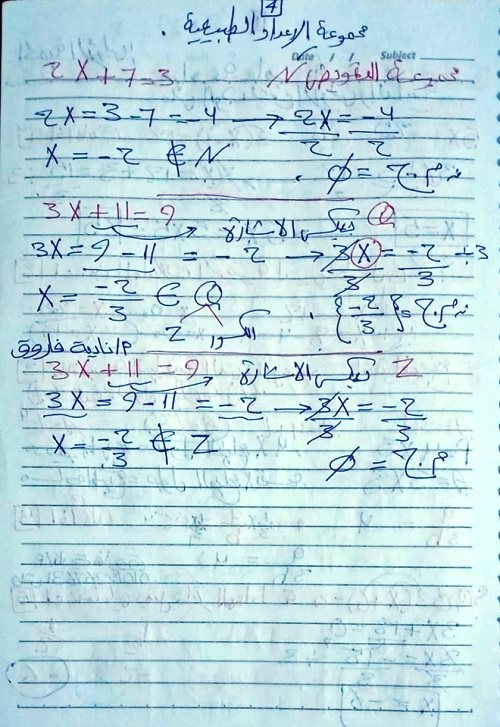 4
مجموعة الاعداد الطبيعية .
Date / / Subject
2X + 7 = 3 مجموعة التعويض N
2X = 3 - 7 = -4 → 2X/2 = -4/2
X = -2 ∉ N م.ح = ∅ .
3X + 11 = 9 بعكس الاشارة Q
3X = 9 - 11 = -2 → 3X/3 = -2/3 ÷3
X = -2/3 ∈ Q م.ح = {-2/3} .
Z الكسور
م/نادية فاروق
3X + 11 = 9 بعكس الاشارة Z
3X = 9 - 11 = -2 → 3X/3 = -2/3
X = -2/3 ∉ Z م.ح = ∅